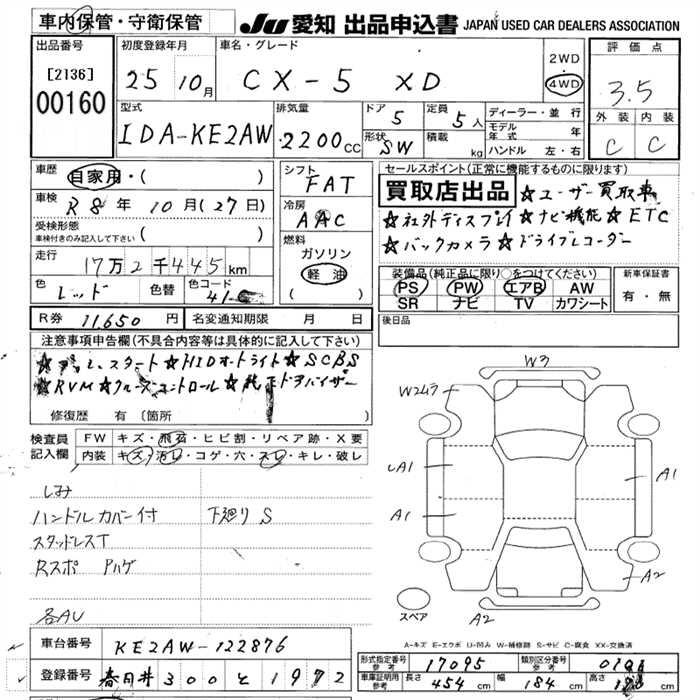 車内保管・守衛保管
JU 愛知 出品申込書 JAPAN USED CAR DEALERS ASSOCIATION
出品番号
[2136]
00160
初度登録年月
25 10月
車名・グレード
CX-5 XD
2WD
4WD
評価点
3.5
外装 内装
C C
型式
IDA-KE2AW
排気量
2200cc
ドア
5
形状
SW
定員
5人
積載
kg
ディーラー・並行
モデル年式 年
ハンドル 左・右
車歴
自家用・( )
車検
R8年 10月(27日)
受検形態
車検付きのみ記入して下さい ( )
走行
17万2千445km
色
レッド
色替
色コード
シフト
FAT
冷房
AAC
燃料
ガソリン
軽油
( )
セールスポイント(正常に機能するものに限ります)
買取店出品 ☆ユーザー買取車
☆社外ディスプレイ☆ナビ機能☆ETC
☆バックカメラ☆ドライブレコーダー
装備品(純正品に限り○をつけてください)
PS PW エアB AW
SR ナビ TV カワシート
新車保証書
有・無
R券 11,650円
名変通知期限 月 日
後日品
注意事項申告欄(不具合内容等は具体的に記入して下さい)
スタート☆HIDオートライト☆SCBS
☆RVM☆クルーズコントロール☆純正ドアバイザー
修復歴 有 (箇所 )
検査員記入欄
FW キズ・飛石・ヒビ割・リペア跡・X要
内装 キズ・汚レ・コゲ・穴・スレ・キレ・破レ
しみ
ハンドルカバー付 下廻りS
スタッドレスT
Rスポ ハゲ
各AU
W3
W2
A1
A1
A1
A2
A2
スペア
A-キズ E-エクボ U-凹み W-補修跡 S-サビ C-腐食 XX-交換済
車台番号
KE2AW-122876
登録番号
春日井300と1972
形式指定番号
参考
17095
類別区分番号
参考
車庫証明用
参考
長さ 454cm
幅 184cm
高さ cm